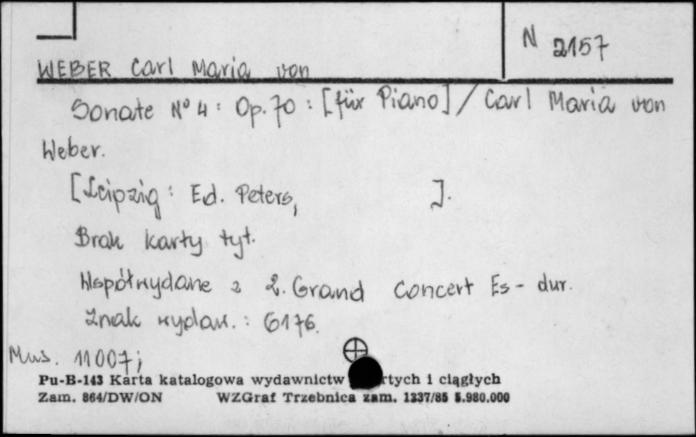 N 2157
WEBER Carl Maria von
Sonate Nº 4 : Op. 70 : [für Piano] / Carl Maria von
Weber.
[Leipzig : Ed. Peters, ].
Brak karty tyt.
Współwydane z 2. Grand Concert Es - dur.
Znak wydaw. : 6176.
Mus. 11007;
Pu-B-143 Karta katalogowa wydawnictw rtych i ciągłych
Zam. 864/DW/ON WZGraf Trzebnica zam. 1237/85 5.980.000